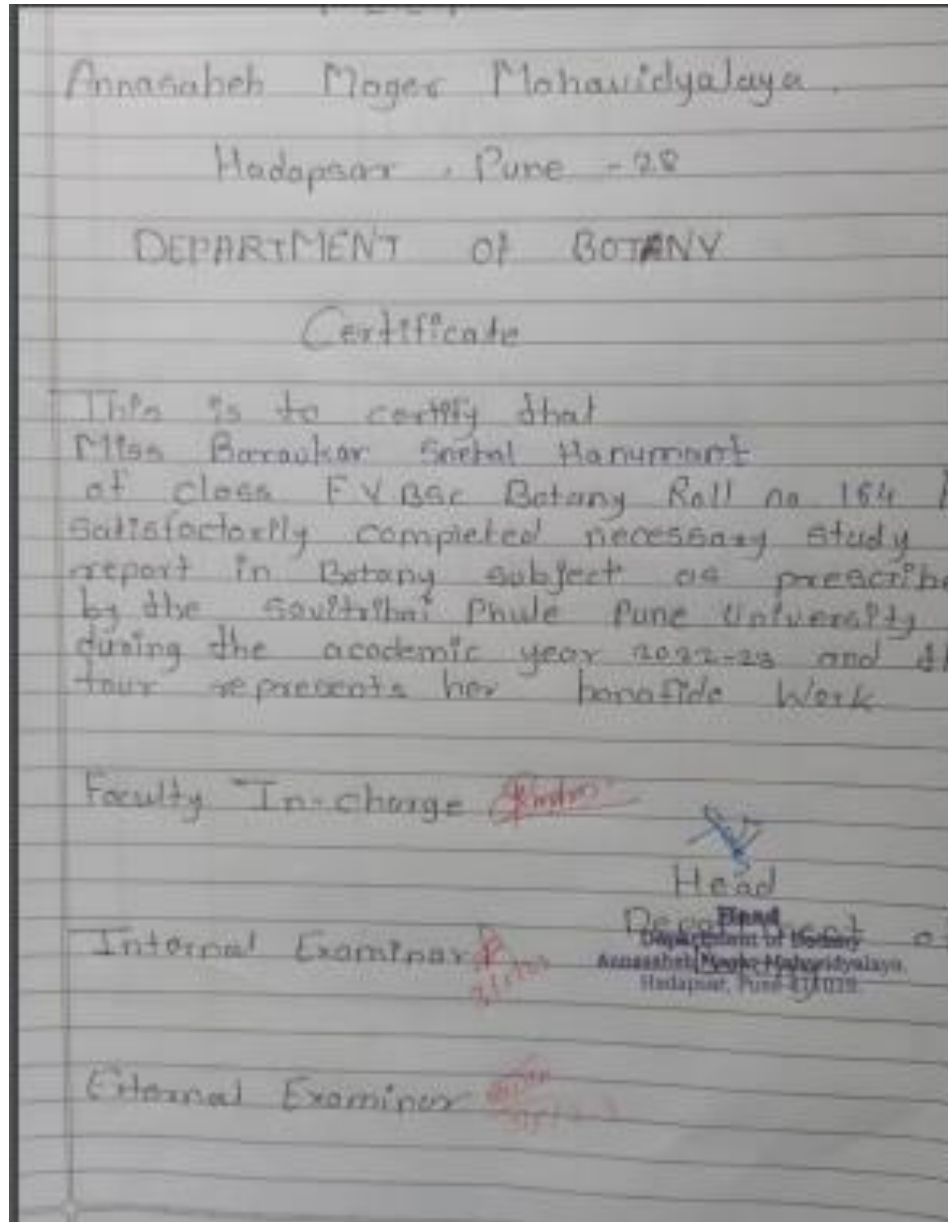 Annasaheb Mager Mahavidyalaya.
Hadapsar, Pune - 28
DEPARTMENT of BOTANY
Certificate
This is to certify that
Miss Baravkar Snehal Hanumant
of class F Y BSc Botany Roll no 164
satisfactorily completed necessary study
report in Botany subject as prescribe
by the Savitribai Phule Pune University
during the academic year 2022-23 and th
tour represents her bonafide Work
Faculty In-charge
Head
Department of
Head
Department of Botany
Annasaheb Magar Mahavidyalaya,
Hadapsar, Pune-411028.
Internal Examiner
External Examiner